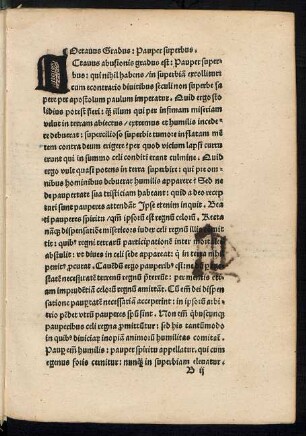 Octauus Gradus: Pauper superbus.
Octauus abusionis gradus est: Pauper super
bus: qui nihil habens/in superbiā extollitur
cum econtrario diuitibus seculi non superbe sa
pere per apostolum paulum imperatur. Quid ergo sto
lidius potest fieri: qͣꝫ illum qui per infimam miseriam
velut in terram abiectus/extremus et humilis incede
re debuerat: supercilioso superbie tumore inflatam mē
tem contra deum erigere? per quod vicium lapsi corru
erant qui in summo celi conditi erant culmine. Quid
ergo vult quasi potens in terra superbire: qui pre om
nibus hominibus debuerat humilis apparere? Sed ne
de paupertate sua tristiciam habeant: quid a deo recep
turi sunt pauperes attendāt. Ipse etenim inquit. Bea
ti pauperes spiritu/qm̄ ipsorū est regnū celorū. Recta
nāqꝫ dispensatiōe misericors iudex celi regnū illis cōmit
tit: quibꝰ regni terrarū participationē inter mortales
abstulit: vt diues in celi sede appareat: qͥ in terra
penitꝰ Cauēdū ergo pauperibꝰ est: ne
statē necessitatē terrenū regnū pereunt: permentis
am impudētiā celorū regnū amittāt. Cū em̄ dei dispen
satione paupertatē necessariā acceperint: in ipsorū arbi
trio pēdet vtrū pauperes spū sint. Non em̄ qͥbuscunqꝫ
pauperibus celi regna ꝓmittūtur: sed his cantūmodo
in quibꝰ diuiciaꝝ inopiā animorū humilitas comitat̄.
Paup em̄ humilis: pauper spiritu appellatur. qui cum
egenus foris cernitur: nunqͣꝫ in superbiam eleuatur.
B ij